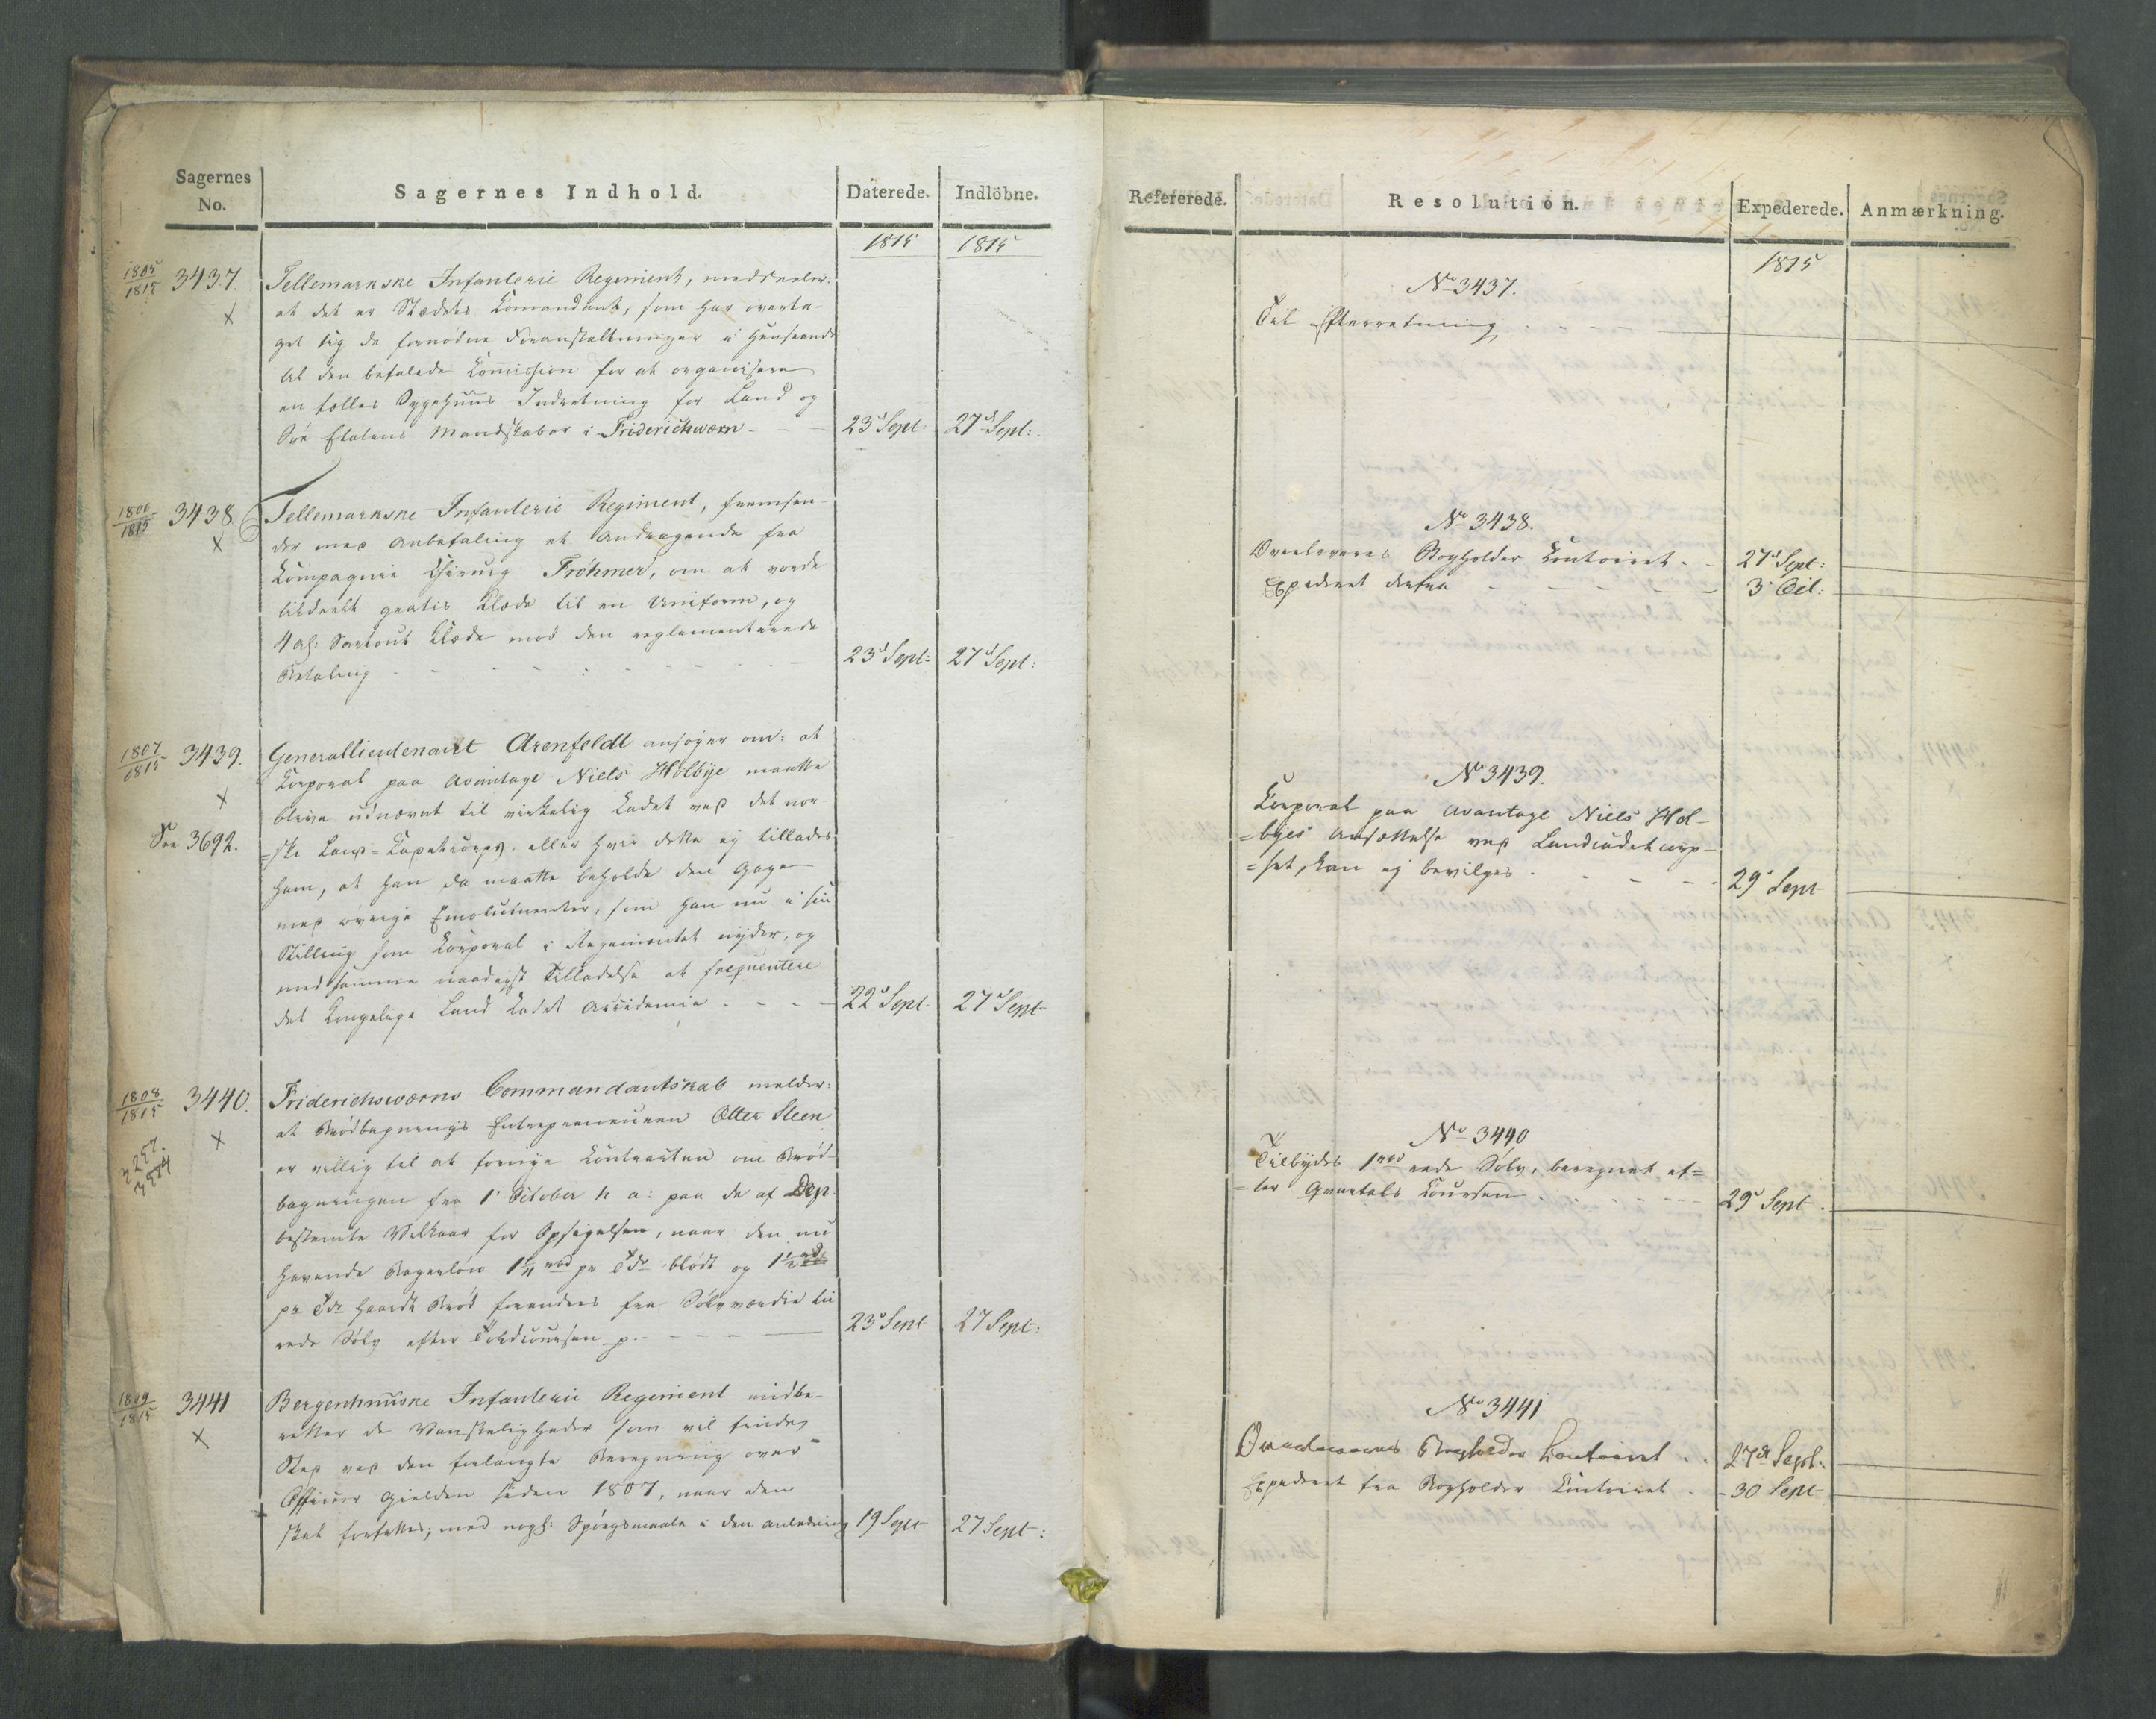 Sagernes
No.
Sagernes Indhold.
Daterede.
Indlöbne.
1815
1815
1805
1815
3437.
Tellemarkske Infanterie Regiment, meddeeler:
at det er Stædets Comandant, som har overta-
get sig de fornødne Foranstaltninger i Henseende
til den befalede Comission for at organisere
en fælles Sygehuus Indretning for Land og
Søe Etatens Mandskaber i Friderichsværn
23d Sept:
27d Sept:
1806
1815
3438
Tellemarkske Infanterie Regiment, fremsen-
der med Anbefaling et Andragende fra
Compagnie Chirurg Fröhmer, om at vorde
tildeelt gratis Klæde til en Uniform, og
4 al: Surtout Klæde mod den reglementerede
Betaling
23d Sept:
27d Sept:
1807
1815
3439.
See 3692.
Generallieutenant Arenfeldt ansøger om: at
Corporal paa Avantage Niels Holbye maatte
blive udnævnt til virkelig Cadet ved det nor-
=ske Land=Cadetcorps, eller hvis dette ej tillades
ham, at han da maatte beholde den Gage
med øvrige Emolumenter, som han nu i sin
Stilling som Corporal i Regimentet nyder, og
med samme naadigst Tilladelse at frequentere
det kongelige Land Cadet Accademie
22d Sept
27d Sept
1808
1815
3440.
3257.
3574
Friderichsværns Commandantskab melder:
at Brødbagnings Entrepreneuren Otter Steen
er villig til at fornye Contracten om Brød-
bagningen fra 1' October h a: paa de af Dep
bestemte Vilkaar for Opsigelsen, naar den nu
havende Bagerløn 1¼ rbd pr Tde blødt og 1½ rbd
pr Tde haardt Brød forandres fra Sølvværdie til
rede Sølv efter Toldcoursen p.
23d Sept
27 Sept:
1809
1815
3441
Bergenhuuske Infanterie Regiment indbe-
retter de Vanskeligheder som vil finde
Sted ved den forlangte Beregning over
Officier Gielden siden 1807, naar den
skal forfattes; med nogl: Spörgsmaale i den anledning
19 Sept
27 Sept:
Refererede.
Resolution.
Expederede.
Anmærkning.
1815
No 3437.
Til Efterretning
No 3438.
Overleveres Bogholder Contoiret
27d Sept:
Expederet derfra
3' Oct:
No 3439.
Corporal paa Avantage Niels Hol-
=byes Ansættelse ved Landcadetcorp-
=set, kan ej bevilges
29' Sept
No 3440
Tilbydes 1 rbd rede Sølv, beregnet ef=
=ter Qvartals Coursen
29' Sept
No 3441
Overleveres Bogholder Contoiret
27de Sept:
Expederet fra Bogholder Contoiret
30 Sept